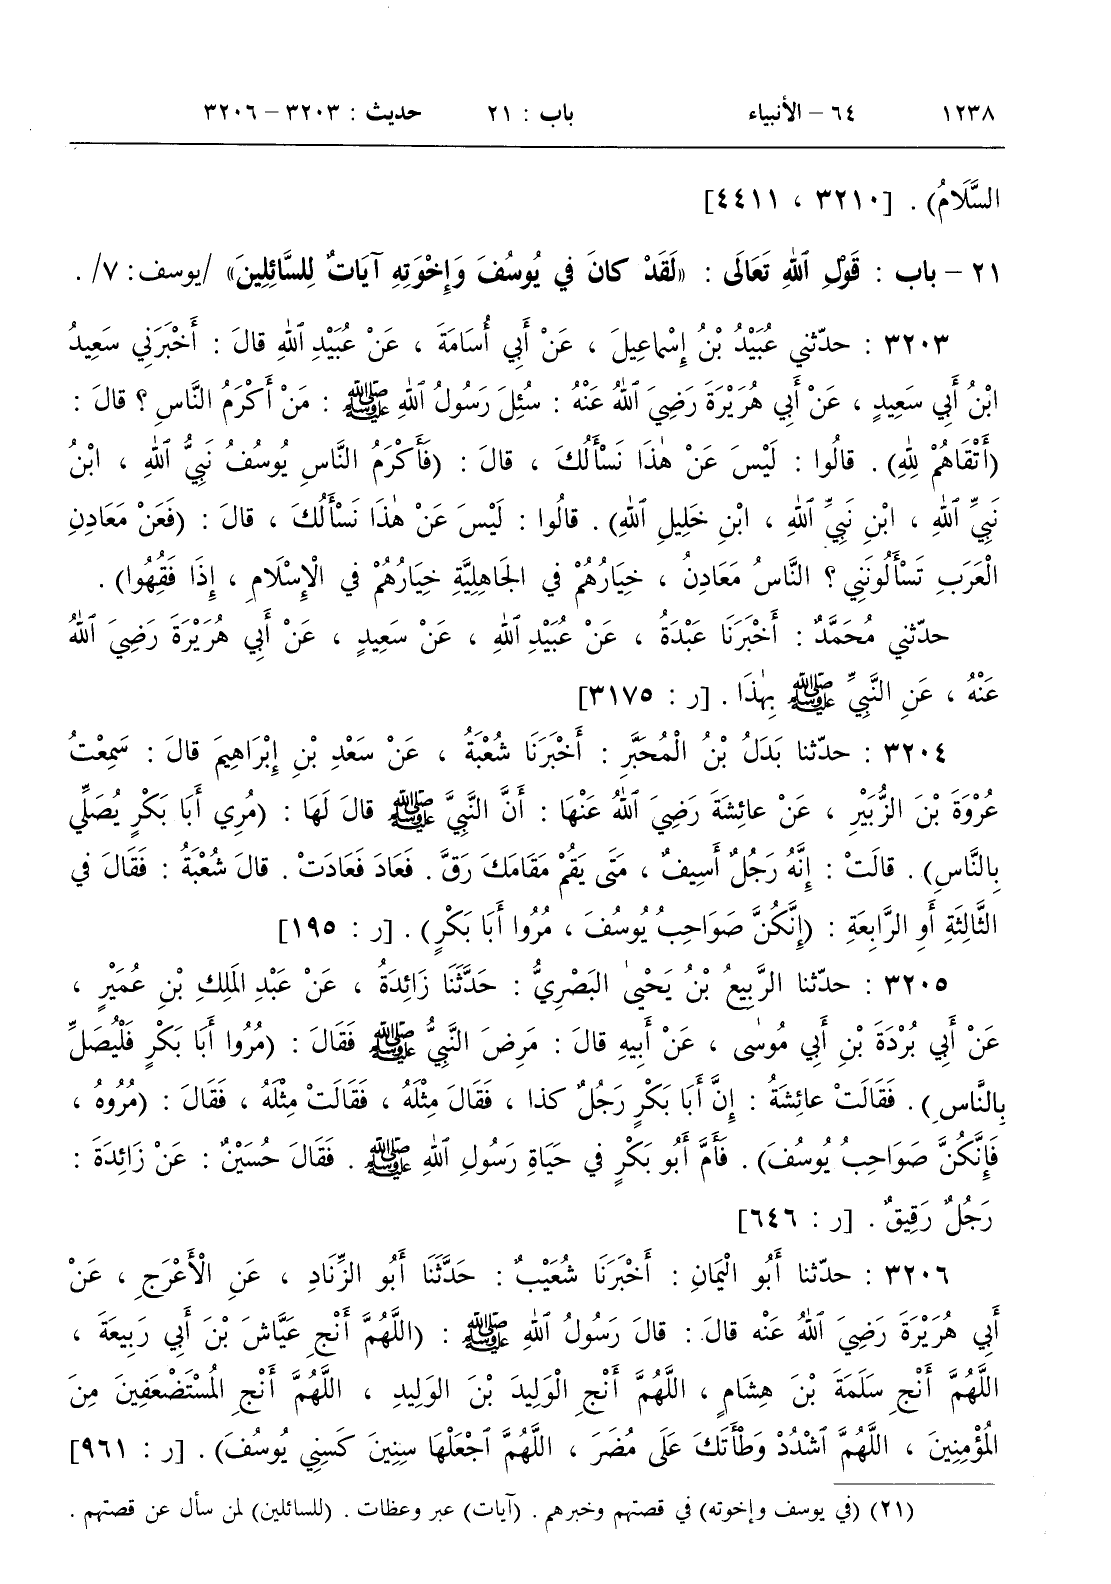 ١٢٣٨ ٦٤ – الأنبياء باب : ٢١ حديث : ٣٢٠٣ – ٣٢٠٦
السَّلَامُ) . [٣٢١٠ ، ٤٤١١]
٢١ – باب : قَوْلِ ٱللهِ تَعَالَى : «لَقَدْ كانَ في يُوسُفَ وَإِخْوَتِهِ آيَاتٌ لِلسَّائِلِينَ» /يوسف: ٧/ .
٣٢٠٣ : حدّثني عُبَيْدُ بْنُ إِسْماعِيلَ ، عَنْ أَبِي أُسَامَةَ ، عَنْ عُبَيْدِ ٱللهِ قالَ : أَخْبَرَنِي سَعِيدُ
ابْنُ أَبِي سَعِيدٍ ، عَنْ أَبِي هُرَيْرَةَ رَضِيَ ٱللهُ عَنْهُ : سُئِلَ رَسُولُ ٱللهِ ﷺ : مَنْ أَكْرَمُ النَّاسِ ؟ قالَ :
(أَتْقَاهُمْ لِلهِ) . قالُوا : لَيْسَ عَنْ هٰذَا نَسْأَلُكَ ، قالَ : (فَأَكْرَمُ النَّاسِ يُوسُفُ نَبِيُّ ٱللهِ ، ابْنُ
نَبِيِّ ٱللهِ ، ابْنِ نَبِيِّ ٱللهِ ، ابْنِ خَلِيلِ ٱللهِ) . قالُوا : لَيْسَ عَنْ هٰذَا نَسْأَلُكَ ، قالَ : (فَعَنْ مَعَادِنِ
الْعَرَبِ تَسْأَلُونَنِي ؟ النَّاسُ مَعَادِنُ ، خِيَارُهُمْ في الجَاهِلِيَّةِ خِيَارُهُمْ في الْإِسْلَامِ ، إِذَا فَقُهُوا) .
حدّثني مُحَمَّدٌ : أَخْبَرَنَا عَبْدَةُ ، عَنْ عُبَيْدِ ٱللهِ ، عَنْ سَعِيدٍ ، عَنْ أَبِي هُرَيْرَةَ رَضِيَ ٱللهُ
عَنْهُ ، عَنِ النَّبِيِّ ﷺ بِهٰذَا . [ر : ٣١٧٥]
٣٢٠٤ : حدّثنا بَدَلُ بْنُ الْمُحَبَّرِ : أَخْبَرَنَا شُعْبَةُ ، عَنْ سَعْدِ بْنِ إِبْرَاهِيمَ قالَ : سَمِعْتُ
عُرْوَةَ بْنَ الزُّبَيْرِ ، عَنْ عائِشَةَ رَضِيَ ٱللهُ عَنْهَا : أَنَّ النَّبِيَّ ﷺ قالَ لَهَا : (مُرِي أَبَا بَكْرٍ يُصَلِّي
بِالنَّاسِ) . قالَتْ : إِنَّهُ رَجُلٌ أَسِيفٌ ، مَتَى يَقُمْ مَقَامَكَ رَقَّ . فَعَادَ فَعَادَتْ . قالَ شُعْبَةُ : فَقَالَ في
الثَّالِثَةِ أَوِ الرَّابِعَةِ : (إِنَّكُنَّ صَوَاحِبُ يُوسُفَ ، مُرُوا أَبَا بَكْرٍ) . [ر : ١٩٥]
٣٢٠٥ : حدّثنا الرَّبِيعُ بْنُ يَحْيىٰ البَصْرِيُّ : حَدَّثَنَا زَائِدَةُ ، عَنْ عَبْدِ المَلِكِ بْنِ عُمَيْرٍ ،
عَنْ أَبِي بُرْدَةَ بْنِ أَبِي مُوسٰى ، عَنْ أَبِيهِ قالَ : مَرِضَ النَّبِيُّ ﷺ فَقَالَ : (مُرُوا أَبَا بَكْرٍ فَلْيُصَلِّ
بِالنَّاسِ) . فَقَالَتْ عائِشَةُ : إِنَّ أَبَا بَكْرٍ رَجُلٌ كذا ، فَقَالَ مِثْلَهُ ، فَقَالَتْ مِثْلَهُ ، فَقَالَ : (مُرُوهُ ،
فَإِنَّكُنَّ صَوَاحِبُ يُوسُفَ) . فَأَمَّ أَبُو بَكْرٍ في حَيَاةِ رَسُولِ ٱللهِ ﷺ . فَقَالَ حُسَيْنٌ : عَنْ زَائِدَةَ :
رَجُلٌ رَقِيقٌ . [ر : ٦٤٦]
٣٢٠٦ : حدّثنا أَبُو الْيَمَانِ : أَخْبَرَنَا شُعَيْبٌ : حَدَّثَنَا أَبُو الزِّنَادِ ، عَنِ الْأَعْرَجِ ، عَنْ
أَبِي هُرَيْرَةَ رَضِيَ ٱللهُ عَنْه قالَ : قالَ رَسُولُ ٱللهِ ﷺ : (اللَّهُمَّ أَنْجِ عَيَّاشَ بْنَ أَبِي رَبِيعَةَ ،
اللَّهُمَّ أَنْجِ سَلَمَةَ بْنَ هِشَامٍ ، اللَّهُمَّ أَنْجِ الْوَلِيدَ بْنَ الوَلِيدِ ، اللَّهُمَّ أَنْجِ المُسْتَضْعَفِينَ مِنَ
المُؤْمِنِينَ ، اللَّهُمَّ ٱشْدُدْ وَطْأَتَكَ عَلَى مُضَرَ ، اللَّهُمَّ ٱجْعَلْهَا سِنِينَ كَسِنِي يُوسُفَ) . [ر : ٩٦١]
(٢١) (في يوسف وإخوته) في قصتهم وخبرهم . (آيات) عبر وعظات . (للسائلين) لمن سأل عن قصتهم .